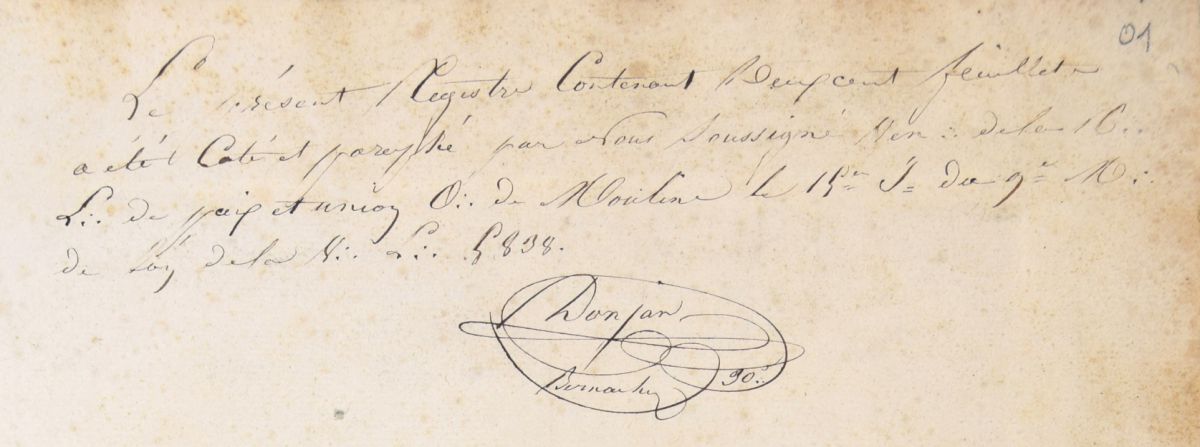 01
Le présent Registre Contenant Deux cent feuillets
a été Coté et paraphé par Nous Soussigné Ven∴ de la R∴
L∴ de paix et union O∴ de Moulins le 15e J= du 9e M∴
de l'an de la V∴ L∴ 5838.
Donjan
30e∴